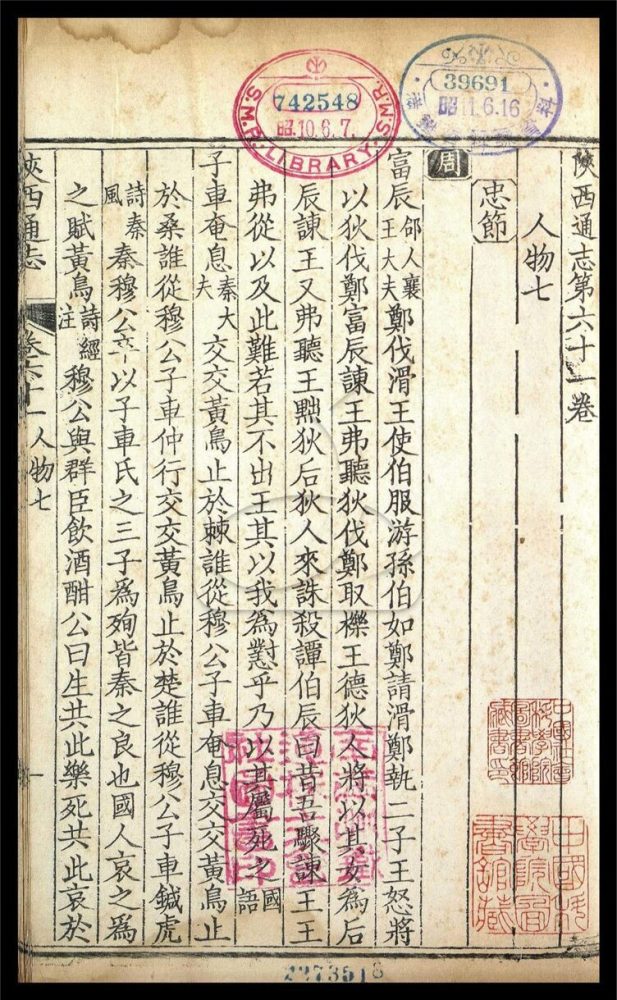 742548
昭.10.6.7.
S.M.R. LIBRARY. S.M.R.
39691
昭11.6.16
陝西通志第六十一卷
人物七
忠節
周
富辰郃人襄王大夫鄭伐滑王使伯服游孫伯如鄭請滑鄭執二子王怒將
以狄伐鄭富辰諫王弗聽狄伐鄭取櫟王德狄人將以其女為后
辰諫王又弗聽王黜狄后狄人來誅殺譚伯辰曰昔吾驟諫王王
弗從以及此難若其不出王其以我為懟乎乃以其屬死之國語
子車奄息秦大夫交交黃鳥止於棘誰從穆公子車奄息交交黃鳥止
於桑誰從穆公子車仲行交交黃鳥止於楚誰從穆公子車鍼虎
詩秦風秦穆公卒以子車氏之三子爲殉皆秦之良也國人哀之爲
之賦黃鳥詩經注穆公與群臣飲酒酣公曰生共此樂死共此哀於
陝西通志 卷六十一 人物七 一
中國科學院圖書館藏